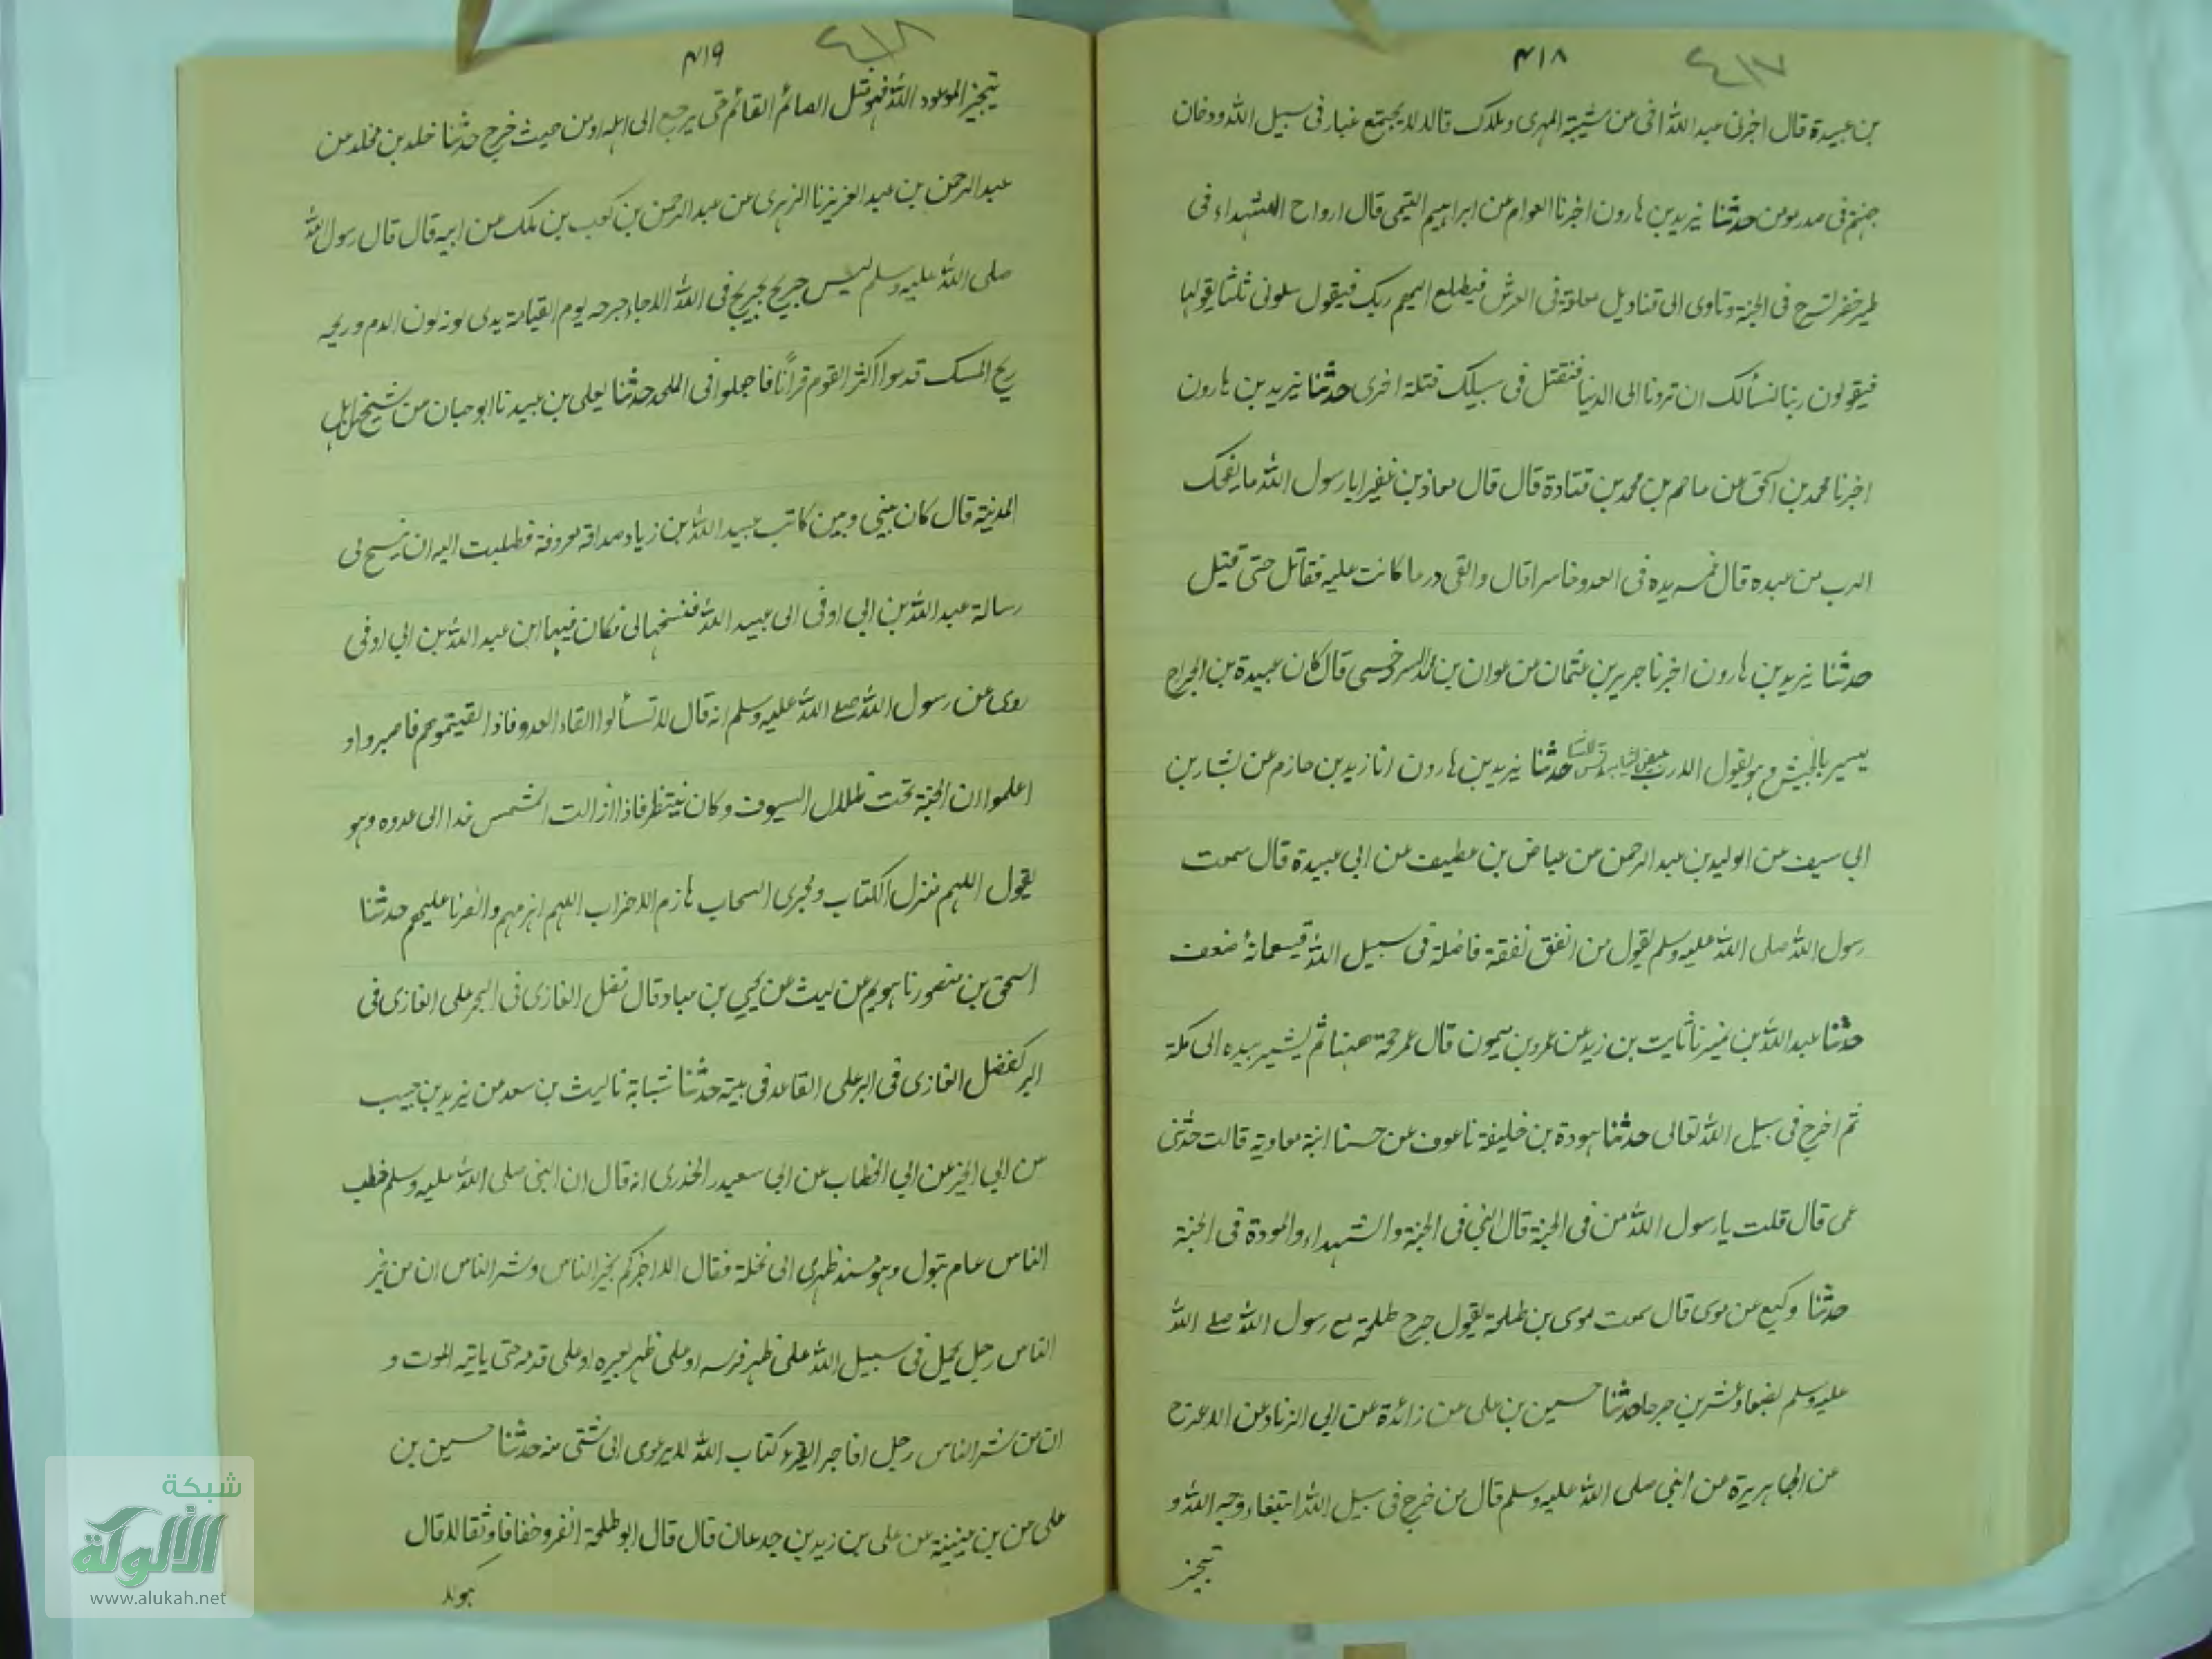 ٤١٧
٤١٨
بن عبيدة قال اخبرنى عبد الله اخى من شيبة المهرى وملكك قالا لا يجتمع غبار فى سبيل الله ودخان
جهنم فى مدر يومن حدثنا يزيد بن هارون اخبرنا العوام عن ابراهيم التيمى قال ارواح الشهداء فى
طير خضر تسرح فى الجنة وتاوى الى قناديل معلقة فى العرش فيطلع اليهم ربك فيقول سلونى ثلثا يقولها
فيقولون ربنا نسألك ان تردنا الى الدنيا فنقتل فى سبيلك قتلة اخرى حدثنا يزيد بن هارون
اخبرنا محمد بن اسحق عن عاصم بن محمد بن قتادة قال قال معاذ بن عفير ايا رسول الله ما يضحك
الرب من عبده قال غمسه يده فى العدو حاسرا قال والقى درعا كانت عليه فقاتل حتى قتل
حدثنا يزيد بن هارون اخبرنا جرير بن عثمان عن قال كان عبيدة بن الجراح
يسير بالجيش وهو يقول الا رب حدثنا يزيد بن هارون انا زيد بن حازم عن بشار بن
ابى سيف عن الوليد بن عبد الرحمن عن عياض بن عطيف عن ابى عبيدة قال سمعت
رسول الله صلى الله عليه وسلم يقول من انفق نفقة فاضلة فى سبيل الله فبسبعمائة ضعف
حدثنا عبد الله بن نمير نا ثابت بن زيد عن عمرو بن ميمون قال عمر حجة ههنا ثم يشير بيده الى مكة
ثم اخرج فى سبيل الله تعالى حدثنا هودة بن خليفة نا عوف عن حسنا ابنة معاوية قالت حدثنى
عمى قال قلت يا رسول الله من فى الجنة قال النبى فى الجنة والشهداء والمودة فى الجنة
حدثنا وكيع عن موسى قال سمعت موسى بن طلحة يقول جرح طلحة مع رسول الله صلے الله
عليه وسلم بضعا وعشرين جرحا حدثنا حسين بن على عن زائدة عن ابى الزناد عن الاعرج
عن ابى هريرة عن النبى صلى الله عليه وسلم قال من خرج فى سبيل الله ابتغاء وجه الله و
تيجيز
٤١٨
٤١٩
تيجيز الموعود الله فهو مثل الصائم القائم حتى يرجع الى اهله او من حيث خرج حدثنا خلد بن مخلد عن
عبد الرحمن بن عبد العزيز نا الزهرى عن عبد الرحمن بن كعب بن ملك عن ابيه قال قال رسول الله
صلى الله عليه وسلم ليس جريح يجرح فى الله الا جاء جرحه يوم القيامة يدمى لونه لون الدم وريحه
ريح المسك قدموا اكثر القوم قرآنا فاجعلوا فى اللحد حدثنا يعلى بن عبيد نا ابو حبان عن شيخ من اهل
المدينة قال كان بينى وبين كاتب عبيد الله بن زياد صداقة معروفة فطلبت اليه ان ينسخ لى
رسالة عبد الله بن ابى اوفى الى عبيد الله فنسخها لى فكان فيها ان عبد الله بن ابى اوفى
روى عن رسول الله صلے الله عليه وسلم انه قال لا تسألوا القاء العدو فاذا لقيتموهم فاصبروا و
اعلموا ان الجنة تحت ظلال السيوف وكان ينتظر فاذا زالت الشمس غدا الى عدوه وهو
يقول اللهم منزل الكتاب ومجرى السحاب هازم الاحزاب اللهم اهزمهم وانصرنا عليهم حدثنا
اسحق بن منصور نا هريم عن ليث عن يحيى بن عباد قال فضل الغازى فى البحر على الغازى فى
البر كفضل الغازى فى البر على القاعد فى بيته حدثنا شبابة نا ليث بن سعد عن يزيد بن حبيب
عن ابى الخير عن ابى الخطاب عن ابى سعيد الخدرى انه قال ان النبى صلى الله عليه وسلم خطب
الناس عام تبوك وهو مسند ظهرى الى نخلة فقال الا اخبركم بخير الناس وشر الناس ان من خير
الناس رجل يحمل فى سبيل الله على ظهر فرسه او على ظهر بعيره او على قدمه حتى ياتيه الموت و
ان من شر الناس رجل افاجر ايقرء كتاب الله لا يرعوى الى شئى منه حدثنا حسين بن
على عن بن عيينة عن على بن زيد بن جدعان قال قال ابو طلحة انفروا خفافا وثقالا قال
هولا
شبكة
الألوكة
www.alukah.net